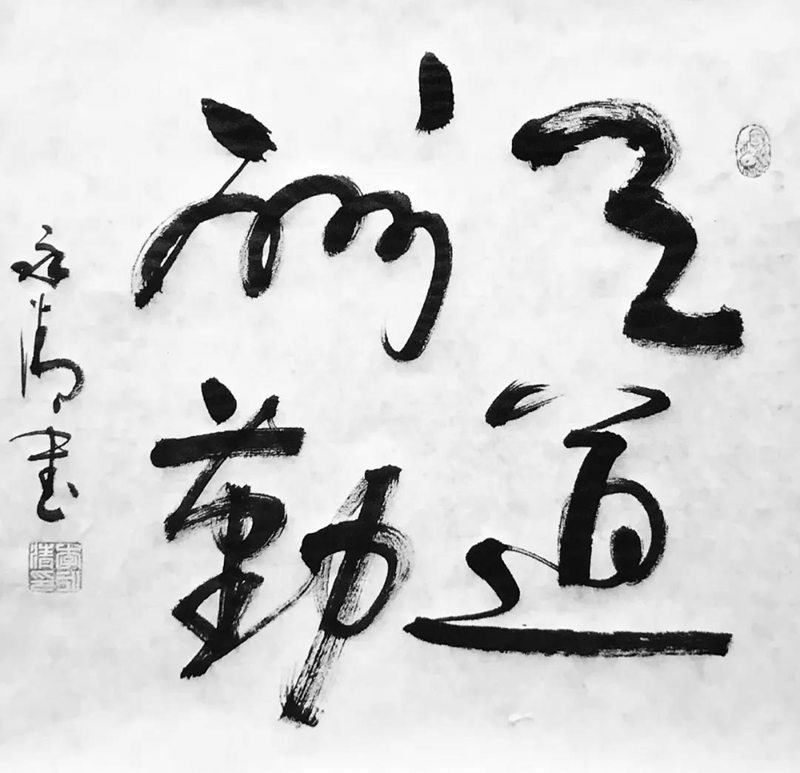 天道
酬勤
永清書